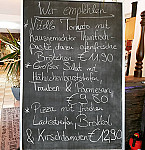 Wir empfehlen
* Nüdli Tomato mit
hausgemachter Thunfisch-
paste, dazu ofenfrische
Brötchen € 11,90
* Großer Salat mit
Hähnchenbruststreifen,
Trauben & Parmesan
€ 9,80
* Pizza mit frischen
Ladesdreifen, Brokkoli,
& Kirschtomaten € 12,30